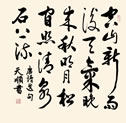 空山新雨
後天氣晚
來秋明月松
間照清泉
石上流
天順書